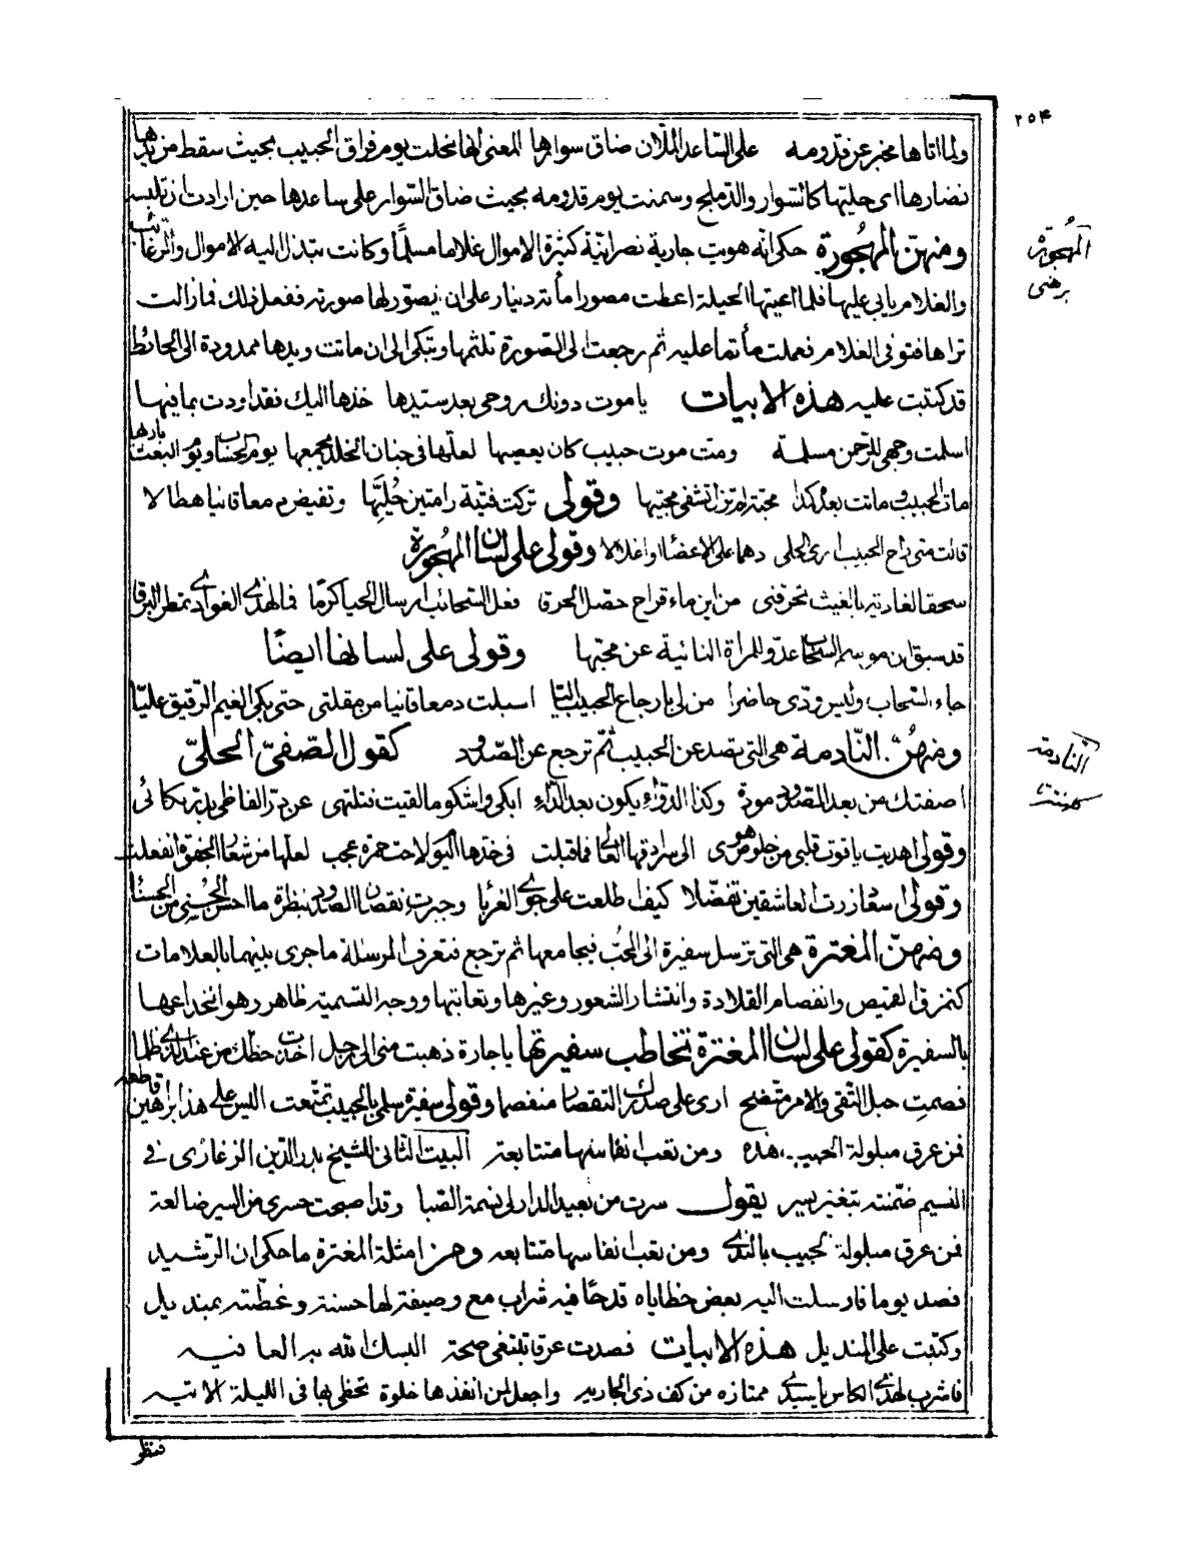 ٢٥۴
ولما اتاها مخبر عن قدومه على الساعد الملآن ضاق سوارها المعنى انها نحلت يوم فراق الحبيب بحيث سقط من يدها
نضارها اى حليتها كالسوار والدملج وسمنت يوم قدومه بحيث ضاق السوار على ساعدها حين ارادت ان تلبسه
ومنهنّ المهجُورة حكى انّه هويت جارية نصرانيّة كثيرة الاموال غلاما مسلمًا وكانت تبذل اليه الاموال والرغائب
المهُجورة
برهنى
والغلام يابى عليها فلما اعيتها الحيلة اعطت مصورا مأته دينار على ان يصوّر لها صورته ففعل ذلك فما زالت
تراها فتوفى الغلام فعملت مأتما عليه ثم رجعت الى الصورة تلثمها وتبكى الى ان ماتت ويدها ممدودة الى الحائط
قد كتبت عليه هذه الابيات ياموت دونك روحى بعد سيدها خذها اليك فقد اودت بما فيها
اسلمت وجهى للرحمن مسلمة ومت موت حبيب كان يعصيها لعلها فى جنان الخلد يجمعها يوم الحساب ويوم البعث باريها
مات الحبيب وماتت بعده كمدا محبته لم تزل تشفى محبيها وقولى تركت فتية رامتين حُليَّها وتفيض دمعا قانيا هطالا
قالت متى راح الحبيب ارى الحلى دهما على الاعضاء او اغلالا وقولى على لسان المهجُورة
سحقا لغادية بالغيث تحرقنى من اين ماء قراح حصل الحرقا فعل السحائب ارسال الحيا كرمًا فما لهذى الغوادى تمطر البرقا
قد سبق ان موسم السحاب عدو للمرأة النائية عن محبها وقولى على لسانها ايضًا
جاء السحاب وليس ودى حاضرا من لى بارجاع الحبيب اليّا اسبلت دمعا قانيا من مقلتى حتى بكى الغيم الرقيق عليّا
ومنهُنّ النّادمة هى التى تصد عن الحبيب ثم ترجع عن الصدود كقول الصّفىّ الحلىّ
النّادمة
اصفتك من بعد الصدود مودة وكذا الدواء يكون بعد الداء ابكى واشكو ما لقيت فتلتهى عن در الفاظى بدر بكائى
وقولى اهديت ياقوت قلبى من خلوص هوى الى سرادقها العالى فما قبلت فى خدها اليوم لاحت حمرة عجب لعلها من شعار الجفوة انفعلت
وقولى اسعاد زرت العاشقين تفضلا كيف طلعت على جوى الغربا وجبرت نقصان الصدود بنظرة ما احسن الحسنى من الحسنا
ومنهنّ المغترة هى التى ترسل سفيرة الى المحبّ فيجامعها ثم ترجع فتعرف المرسلة ما جرى بينهما بالعلامات
كتمزق القميص وانفصام القلادة وانتشار الشعور وغيرها وتعاتبها ووجه التسمية ظاهر وهو انخداعها
بالسفيرة كقولى على لسان المغترة تخاطب سفيرتها ياجارة ذهبت منى الى رجل اخذت حظك من عند الذى ظلما
فصمت حبل التقى والامر متضح ارى على صدرك التقصار منفصما وقولى سفيرة سلمى بالحبيب تمتّعت اليس على هذا براهين قاطعه
فمن عرق مبلولة الجيب هذه ومن تعب انفاسها متتابعة البيت الثانى للشيخ بدر الدين الزغارى فى
النسيم ضمّنته بتغيير يسير يقول سرت من بعيد الدار لى نسمة الصبا وقد اصبحت حسرى من السير ضالعة
فمن عرق مبلولة الجيب بالندى ومن تعب انفاسها متتابعه ومن امثلة المغترة ما حكى ان الرشيد
فصد يوما فارسلت اليه بعض حظاياه قدحًا فيه شراب مع وصيفة لها حسنة وغطّته بمنديل
وكتبت على المنديل هذه الابيات فصدت عرقا تبتغى صحة البسك الله به العافيه
فاشرب بهذى الكاس ياسيدى ممتازه من كف ذى الجاريه واجعل لمن انفذها خلوة تحظى بها فى الليلة الاتيه
فنظر